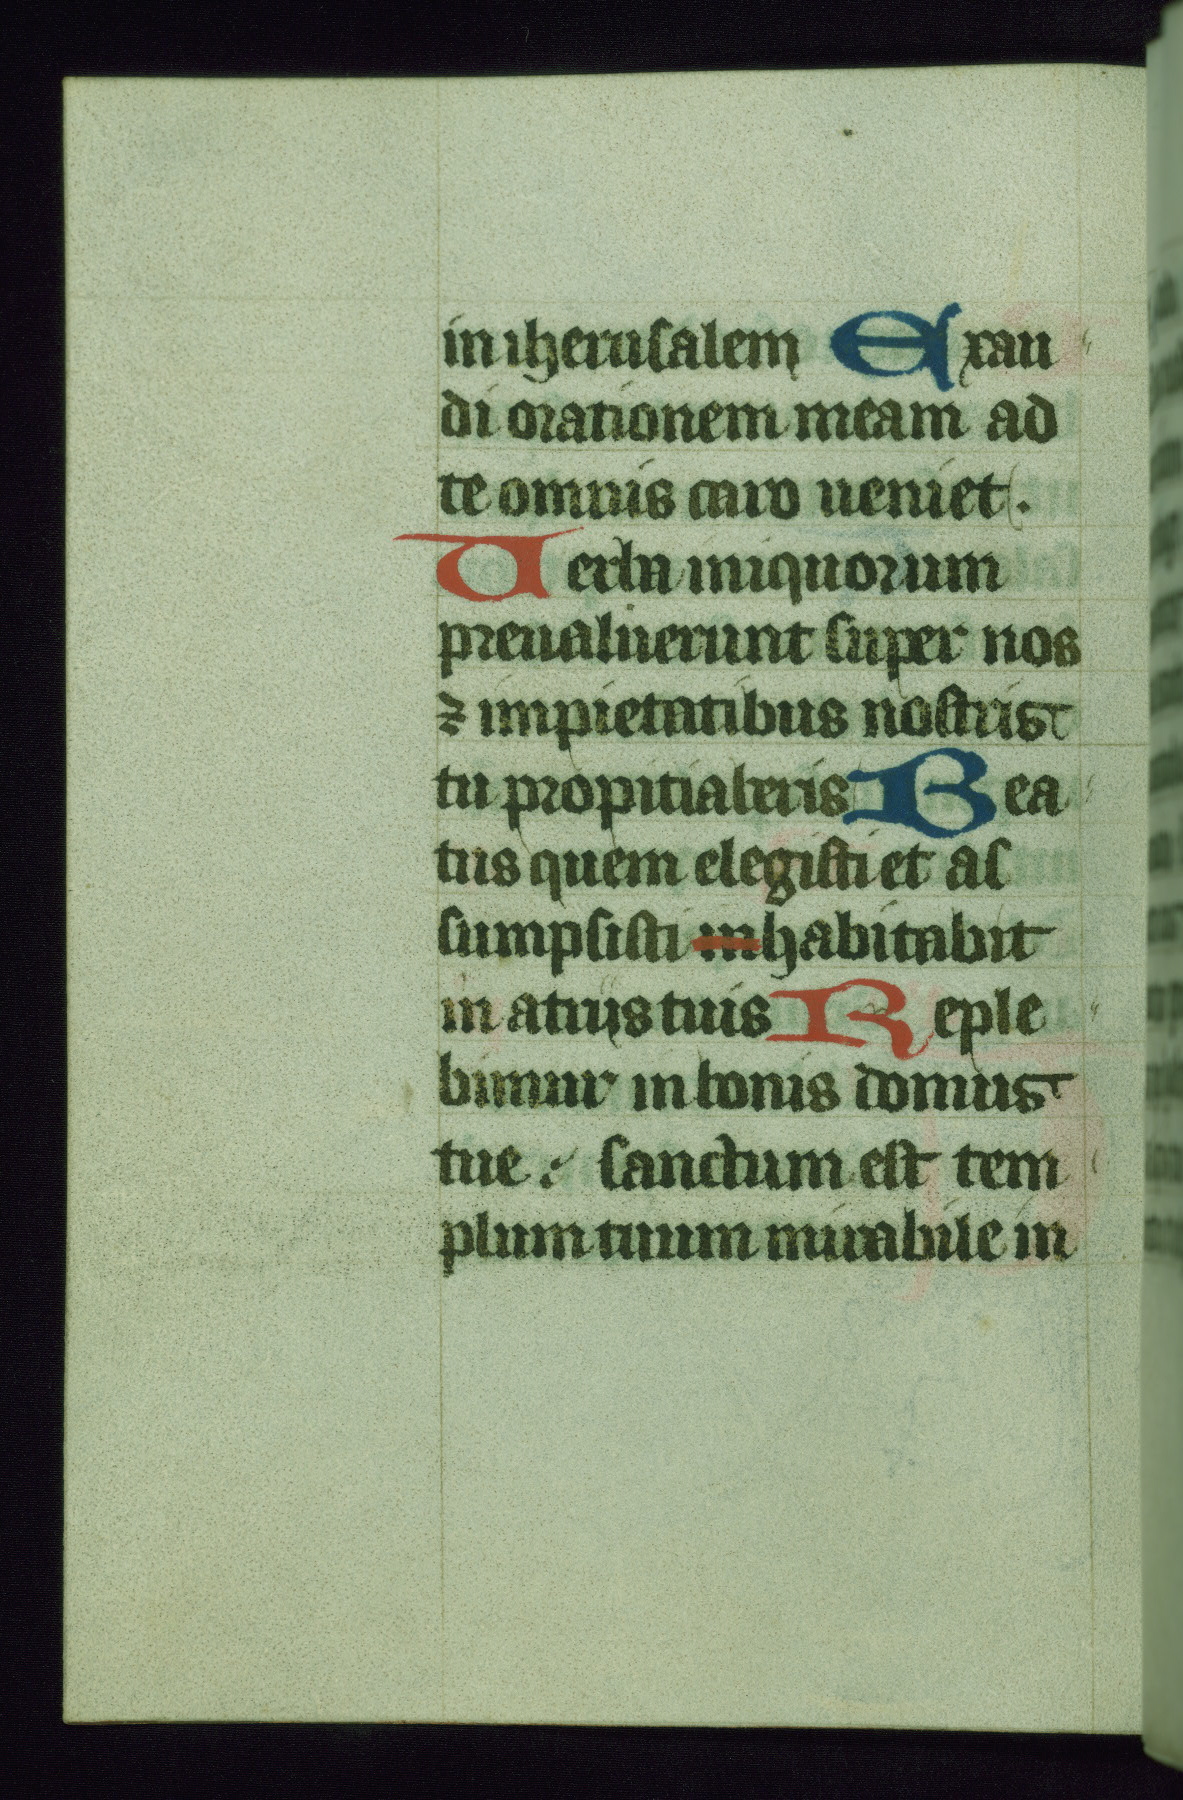 in iherusalem Exau
di orationem meam ad
te omnis caro ueniet.
Uerba iniquorum
preualuerunt super nos
⁊ impietatibus nostris
tu propitiaberis Bea
tus quem elegisti et as
sumpsisti in habitabit
in atriis tuis Reple
bimur in bonis domus
tue: sanctum est tem
plum tuum mirabile in